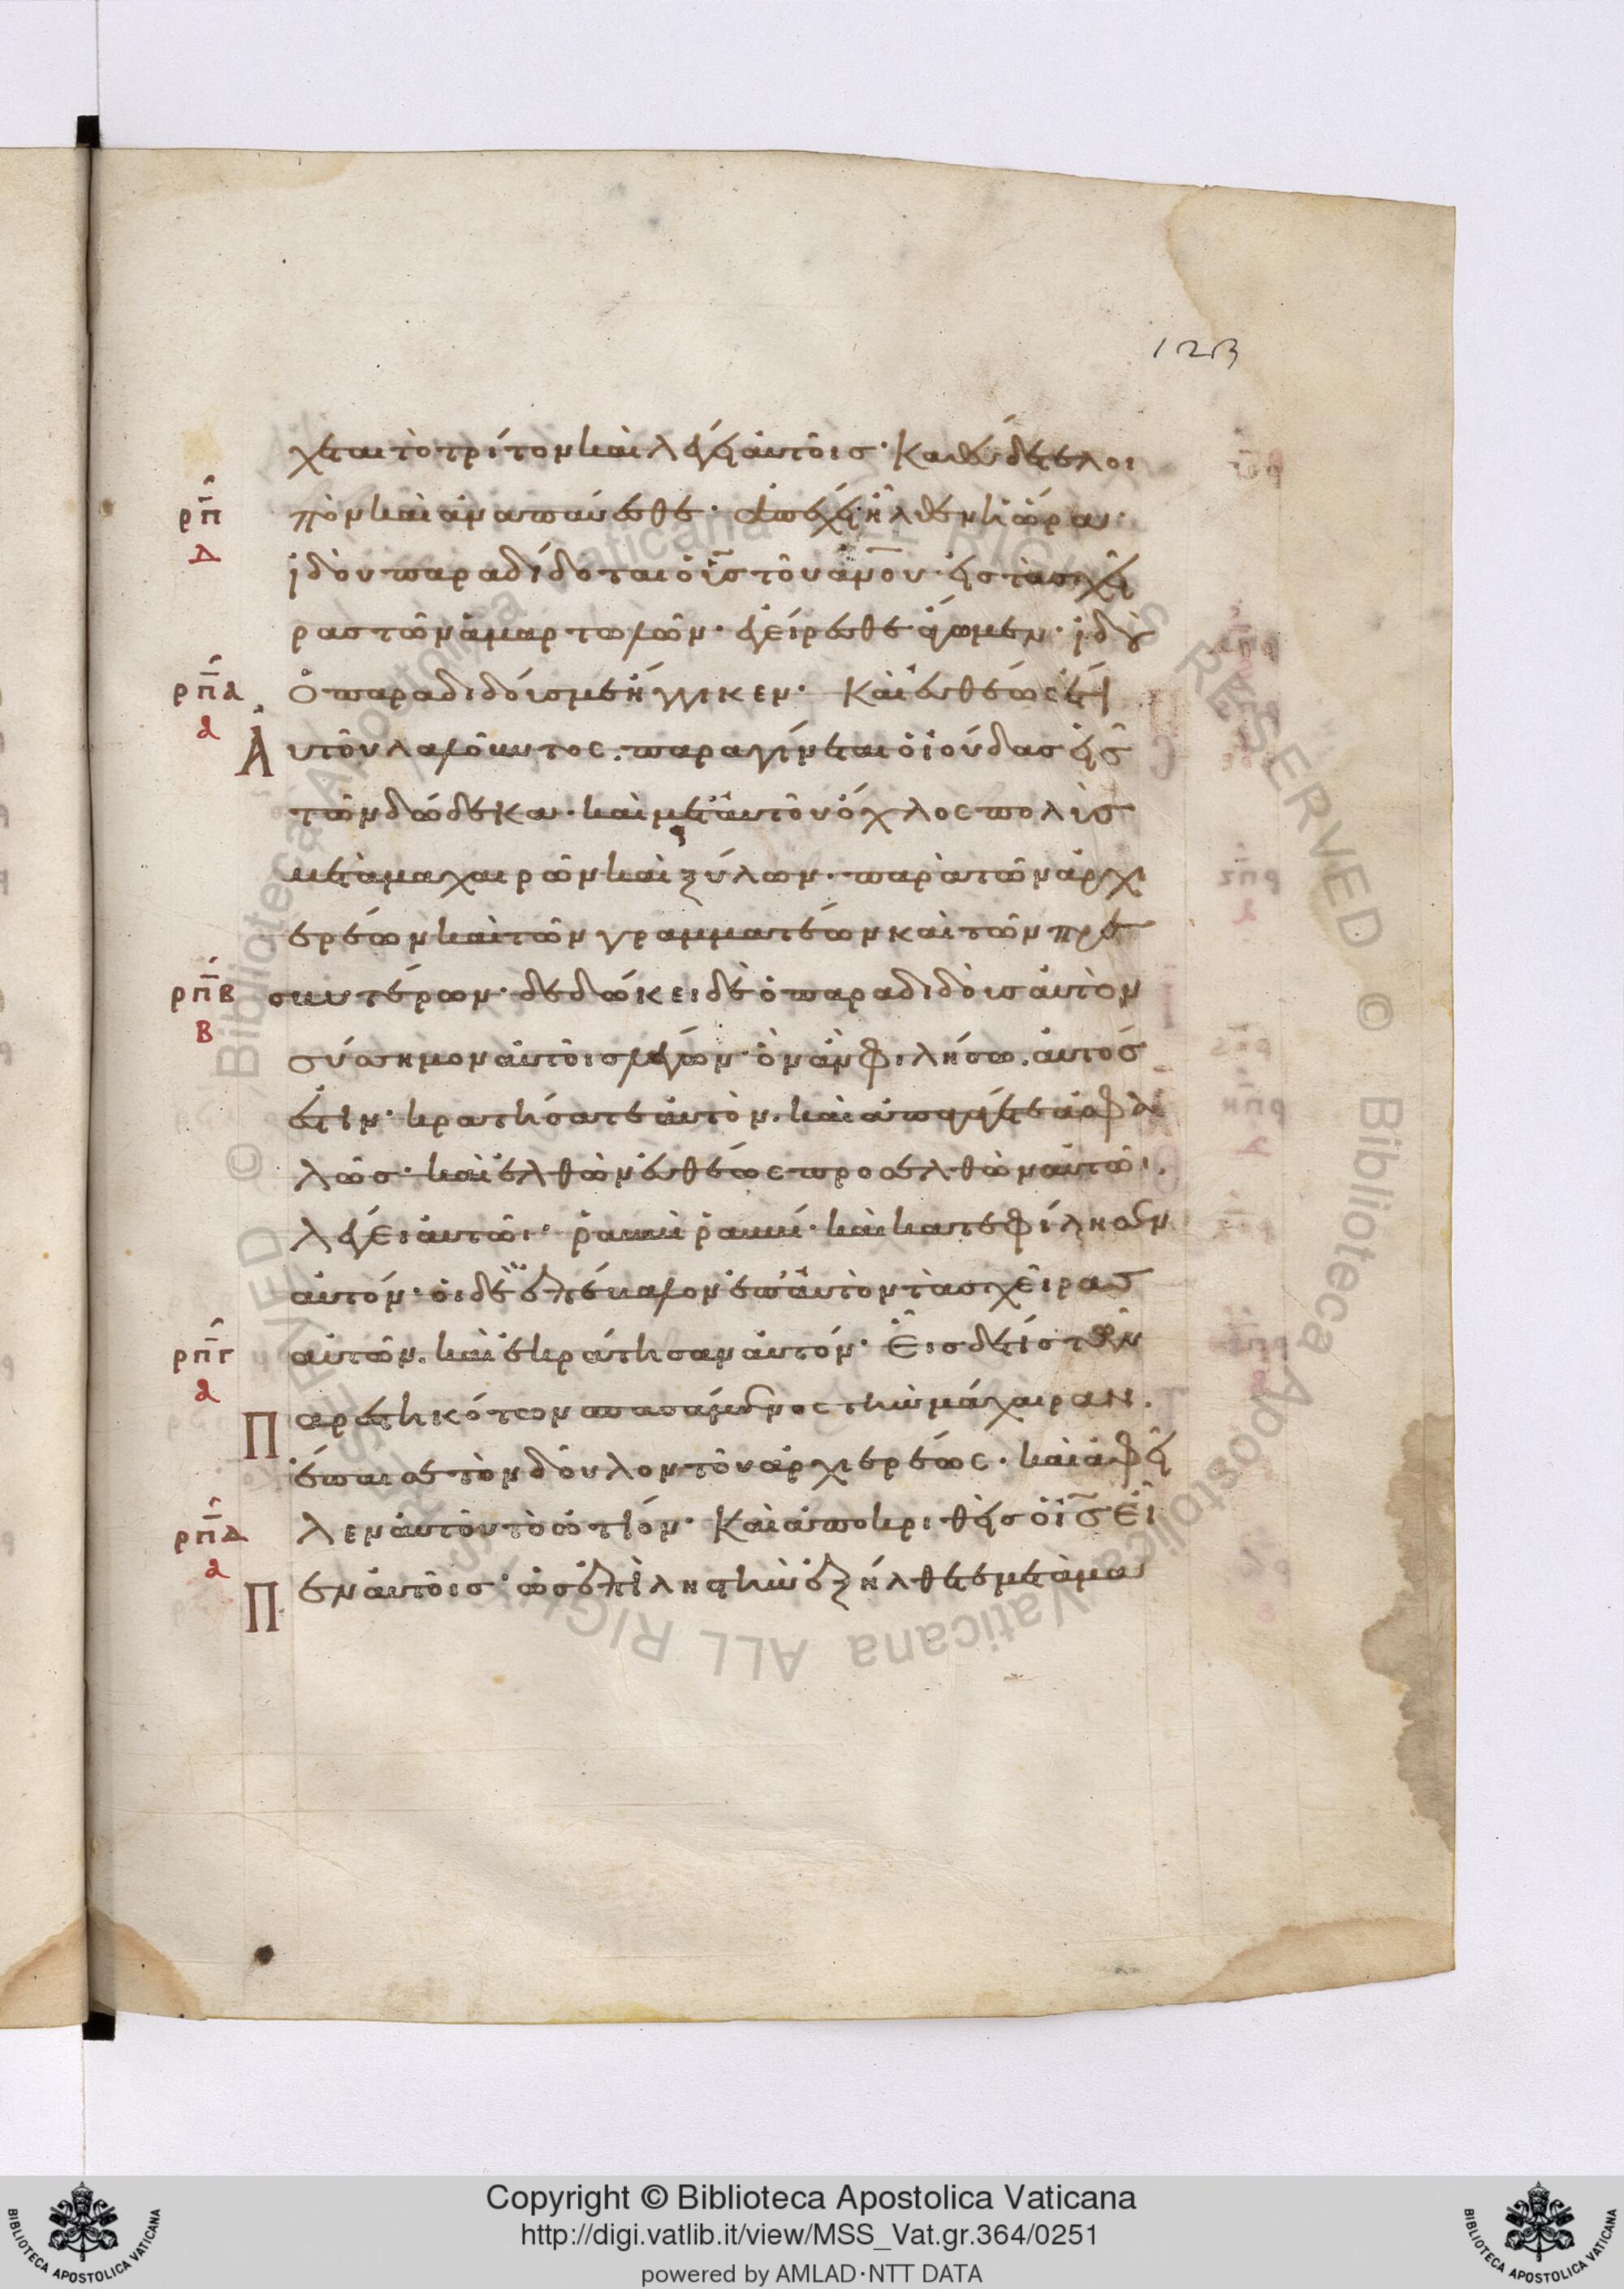 123
χεται τὸ τρίτον καὶ λέγει αὐτοῖς· Καθεύδετε λοι
ρπ πὸν καὶ ἀναπαύεσθε· ἀπέχει· ἦλθεν ἡ ὥρα·
Δ
ἰδοὺ παραδίδοται ὁ υἱς τοῦ ανου· εἰς τὰς χεῖ
ρας τῶν ἁμαρτωλῶν· ἐγείρεσθε ἄγωμεν· ἰδοὺ
ρπα ὁ παραδιδούς με ἤγγικεν· Καὶ εὐθέως ἔτι
α
Αὐτοῦ λαλοῦντος. παραγίνεται ὁ ἰούδας εἷς
τῶν δώδεκα· καὶ μετ' αὐτοῦ ὄχλος πολὺς
μετὰ μαχαιρῶν καὶ ξύλων· παρὰ τῶν ἀρχι
ερέων καὶ τῶν γραμματέων καὶ τῶν πρε
ρπβ σβυτέρων· δεδώκει δὲ ὁ παραδιδοὺς αὐτὸν
Β
σύσσημον αὐτοῖς λέγων· ὃν ἂν φιλήσω. αὐτός
ἐστιν· κρατήσατε αὐτὸν. καὶ ἀπαγάγετε ἀσφα
λῶς· καὶ ἐλθὼν εὐθέως προσελθὼν αὐτῶι.
λέγει αὐτῶι· ῥαββὶ ῥαββί· καὶ κατεφίλησεν
αὐτόν· οἱ δὲ ἐπέβαλον ἐπ' αὐτὸν τὰς χεῖρας
ρπγ αὐτῶν. καὶ ἐκράτησαν αὐτόν· Εἷς δέ τις τῶν
α
Παρεστηκότων σπασάμενος τὴν μάχαιραν.
ἔπαισε τὸν δοῦλον τοῦ ἀρχιερέως· καὶ ἀφεῖ
ρπδ λεν αὐτοῦ τὸ ὠτίον· Καὶ ἀποκριθεὶς ὁ ις εἶ
α
Πεν αὐτοῖς· ὡς ἐπὶ ληστὴν ἐξήλθετε μετὰ μα
Copyright © Biblioteca Apostolica Vaticana
http://digi.vatlib.it/view/MSS_Vat.gr.364/0251
powered by AMLAD·NTT DATA